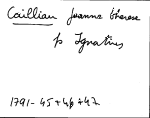 Caillian Joanna Therese
p Ignatius
1791-45+46+42